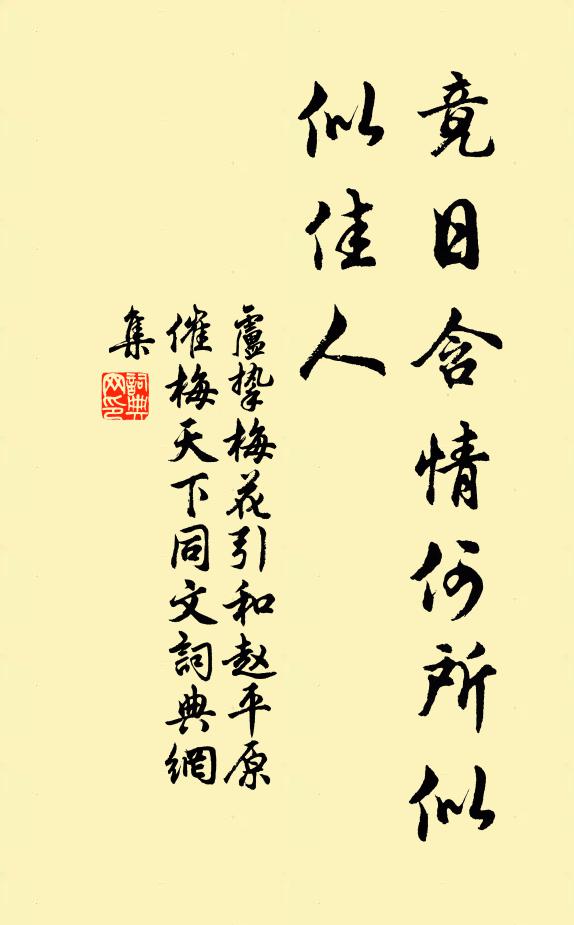 竟日含情何所似
似佳人
盧摯梅花引和赵平原
催梅天下同文詞典網
集
詞典
网印